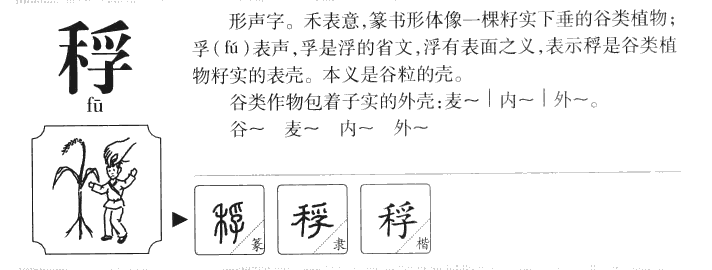 稃
fū
形声字。禾表意,篆书形体像一棵籽实下垂的谷类植物;
孚(fú)表声,孚是浮的省文,浮有表面之义,表示稃是谷类植
物籽实的表壳。本义是谷粒的壳。
谷类作物包着子实的外壳:麦～|内～|外～。
谷～ 麦～ 内～ 外～
稃 篆 稃 隶 稃 楷